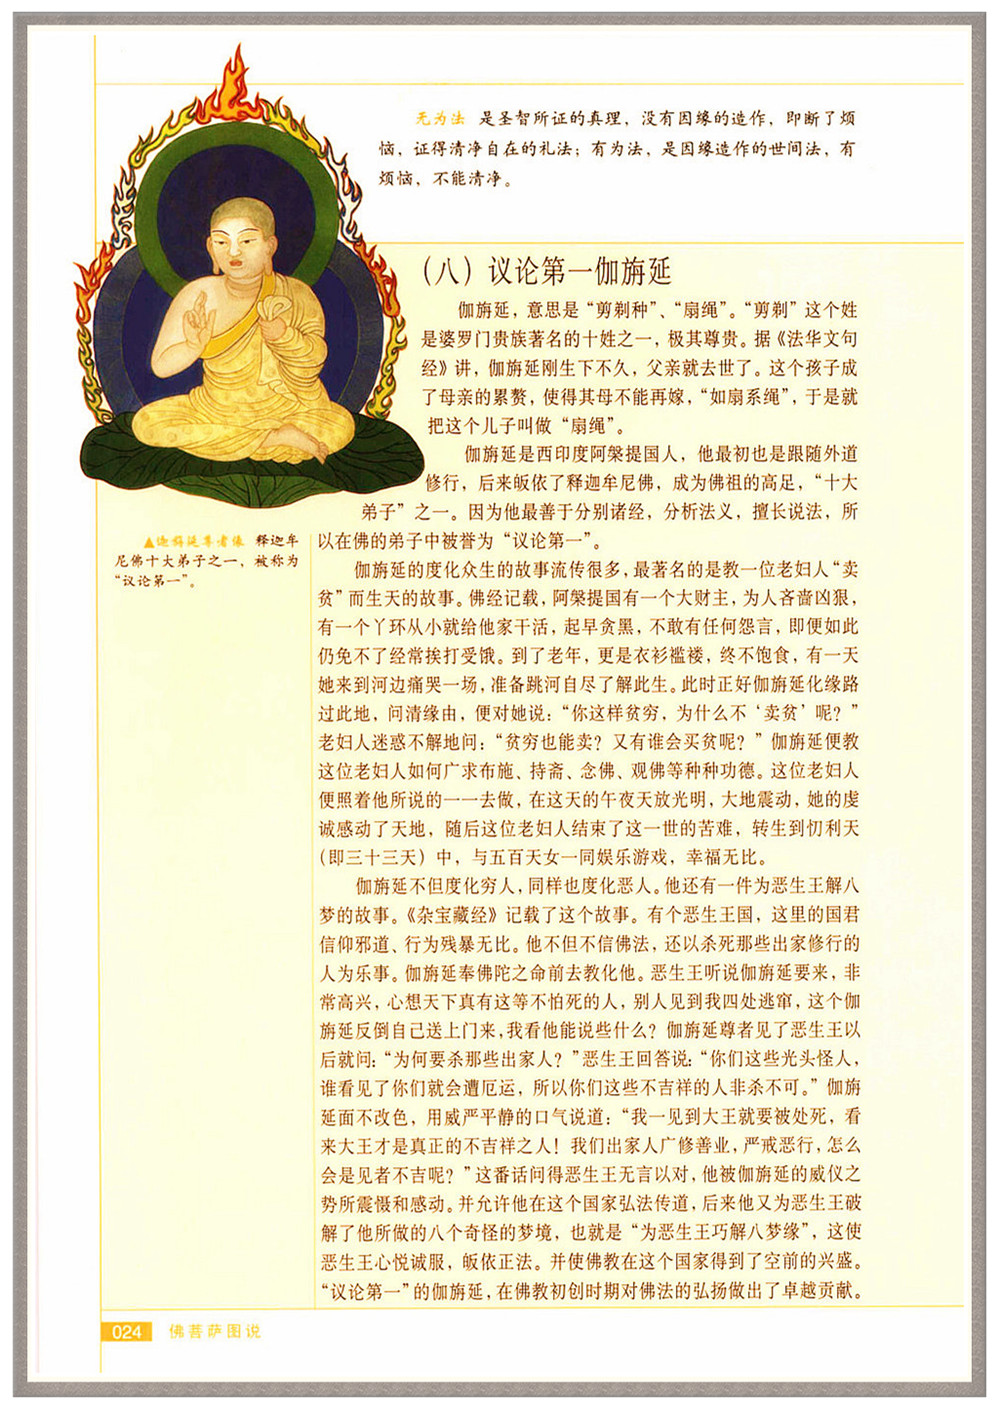 无为法 是圣智所证的真理，没有因缘的造作，即断了烦
恼，证得清净自在的礼法；有为法，是因缘造作的世间法，有
烦恼，不能清净。
（八）议论第一伽旃延
伽旃延，意思是“剪剃种”、“扇绳”。“剪剃”这个姓
是婆罗门贵族著名的十姓之一，极其尊贵。据《法华文句
经》讲，伽旃延刚生下不久，父亲就去世了。这个孩子成
了母亲的累赘，使得其母不能再嫁，“如扇系绳”，于是就
把这个儿子叫做“扇绳”。
伽旃延是西印度阿槃提国人，他最初也是跟随外道
修行，后来皈依了释迦牟尼佛，成为佛祖的高足，“十大
弟子”之一。因为他最善于分别诸经，分析法义，擅长说法，所
以在佛的弟子中被誉为“议论第一”。
▲迦旃延尊者像 释迦牟
尼佛十大弟子之一，被称为
“议论第一”。
伽旃延的度化众生的故事流传很多，最著名的是教一位老妇人“卖
贫”而生天的故事。佛经记载，阿槃提国有一个大财主，为人吝啬凶狠，
有一个丫环从小就给他家干活，起早贪黑，不敢有任何怨言，即便如此
仍免不了经常挨打受饿。到了老年，更是衣衫褴褛，终不饱食，有一天
她来到河边痛哭一场，准备跳河自尽了解此生。此时正好伽旃延化缘路
过此地，问清缘由，便对她说：“你这样贫穷，为什么不‘卖贫’呢？”
老妇人迷惑不解地问：“贫穷也能卖？又有谁会买贫呢？”伽旃延便教
这位老妇人如何广求布施、持斋、念佛、观佛等种种功德。这位老妇人
便照着他所说的一一去做，在这天的午夜天放光明，大地震动，她的虔
诚感动了天地，随后这位老妇人结束了这一世的苦难，转生到忉利天
（即三十三天）中，与五百天女一同娱乐游戏，幸福无比。
伽旃延不但度化穷人，同样也度化恶人。他还有一件为恶生王解八
梦的故事。《杂宝藏经》记载了这个故事。有个恶生王国，这里的国君
信仰邪道、行为残暴无比。他不但不信佛法，还以杀死那些出家修行的
人为乐事。伽旃延奉佛陀之命前去教化他。恶生王听说伽旃延要来，非
常高兴，心想天下真有这等不怕死的人，别人见到我四处逃窜，这个伽
旃延反倒自己送上门来，我看他能说些什么？伽旃延尊者见了恶生王以
后就问：“为何要杀那些出家人？”恶生王回答说：“你们这些光头怪人，
谁看见了你们就会遭厄运，所以你们这些不吉祥的人非杀不可。”伽旃
延面不改色，用威严平静的口气说道：“我一见到大王就要被处死，看
来大王才是真正的不吉祥之人！我们出家人广修善业，严戒恶行，怎么
会是见者不吉呢？”这番话问得恶生王无言以对，他被伽旃延的威仪之
势所震慑和感动。并允许他在这个国家弘法传道，后来他又为恶生王破
解了他所做的八个奇怪的梦境，也就是“为恶生王巧解八梦缘”，这使
恶生王心悦诚服，皈依正法。并使佛教在这个国家得到了空前的兴盛。
“议论第一”的伽旃延，在佛教初创时期对佛法的弘扬做出了卓越贡献。
024 佛菩萨图说